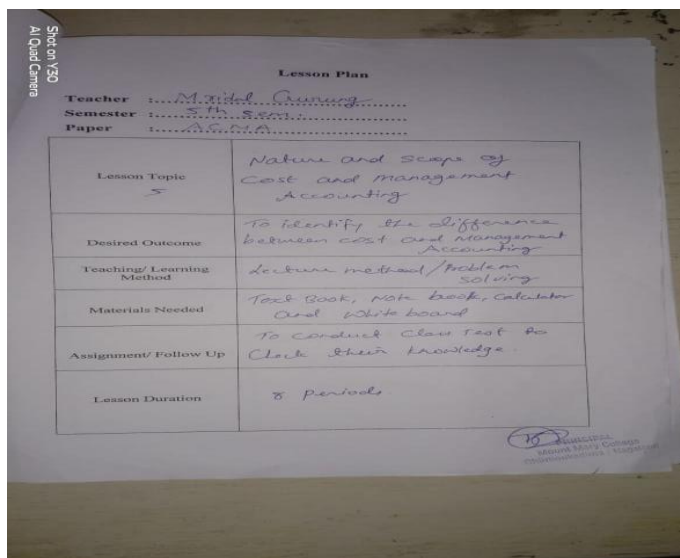 Shot on Y30
AI Quad Camera
Lesson Plan
Teacher : Mridul Gurung
Semester : 5th sem.
Paper : A.C.M.A
Lesson Topic
5
Nature and Scope of
Cost and Management
Accounting
Desired Outcome
To identify the difference
between cost and Management
Accounting
Teaching/ Learning
Method
Lecture method/Problem
solving
Materials Needed
Text Book, Note book, Calculator
and White board
Assignment/ Follow Up
To conduct Class Test to
Check their knowledge.
Lesson Duration
8 periods
PRINCIPAL
Mount Mary College